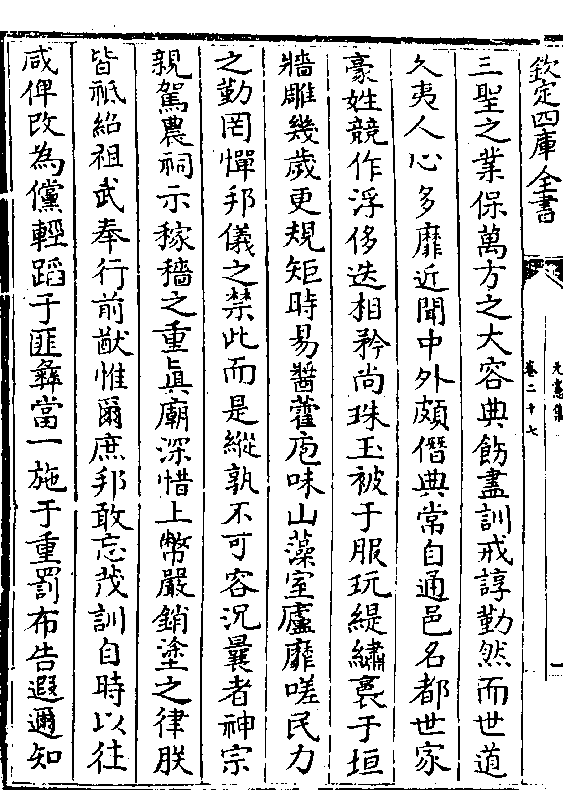 欽定四庫全書
元憲集
卷二十七
三聖之業保萬方之大容典飭盡訓戒諄勤然而世道
久夷人心多靡近聞中外頗僭典常自通邑名都世家
豪姓競作浮侈迭相矜尚珠玉被于服玩緹繡裹于垣
牆雕幾歲更規矩時易醬藿庖味山藻室廬靡嗟民力
之勤罔憚邦儀之禁此而是縱孰不可容況曩者神宗
親駕農祠示稼穡之重眞廟深惜上幣嚴銷塗之律朕
皆祗紹祖武奉行前猷惟爾庶邦敢忘茂訓自時以往
咸俾改為儻輕蹈于匪彝當一施于重罰布告遐邇知